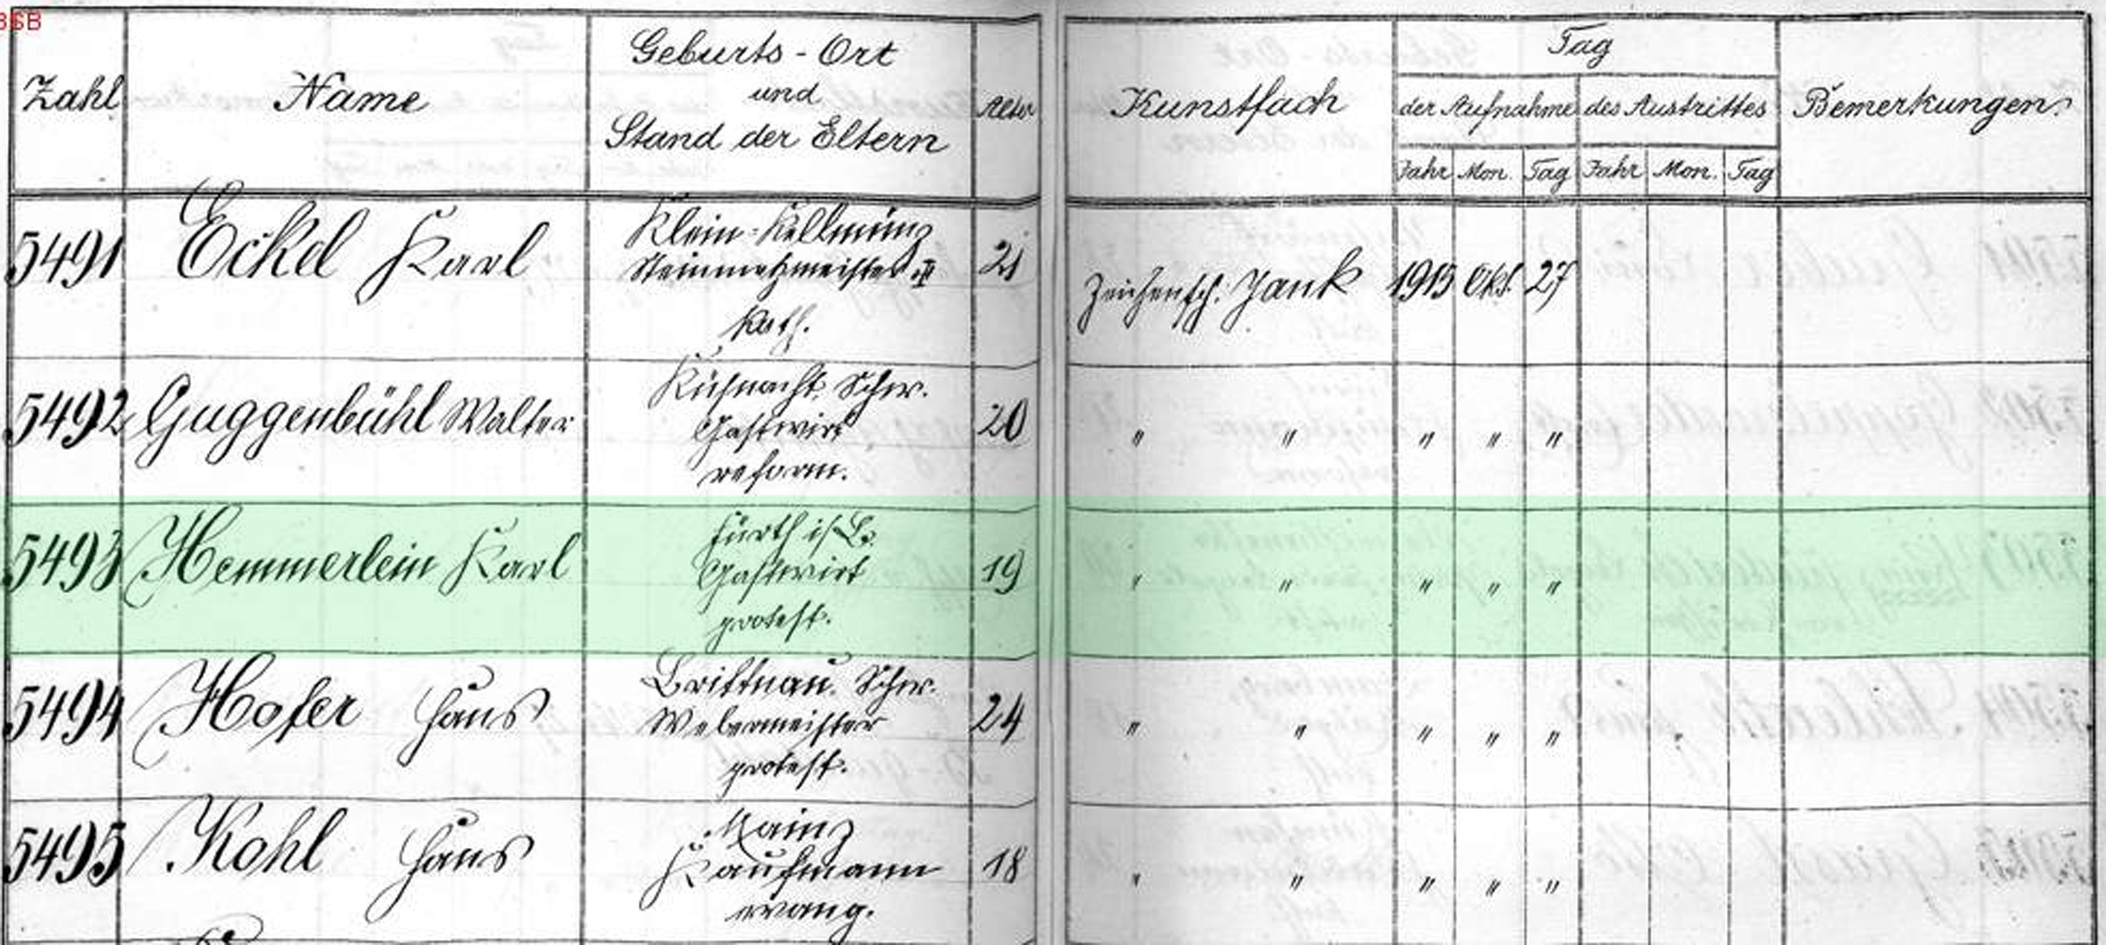 BSB
Zahl Name Geburts-Ort und Stand der Eltern Alter Kunstfach Tag der Aufnahme des Austrittes Bemerkungen.
Jahr Mon. Tag Jahr Mon. Tag
5491 Eckel Karl
Steinmetzmeister
kath.
21 Zeichensch. Jank 1915 Okt. 27
5492 Guggenbühl Walter
Küsnacht, Schw.
Gastwirt
reform.
20 " " " " "
5493 Hemmerlein Karl
Fürth i/B.
Gastwirt
protest.
19 " " " " "
5494 Hofer Hans
Brittnau. Schw.
Webermeister
protest.
24 " " " " "
5495 Kohl Hans
Mainz
Kaufmann
evang.
18 " " " " "